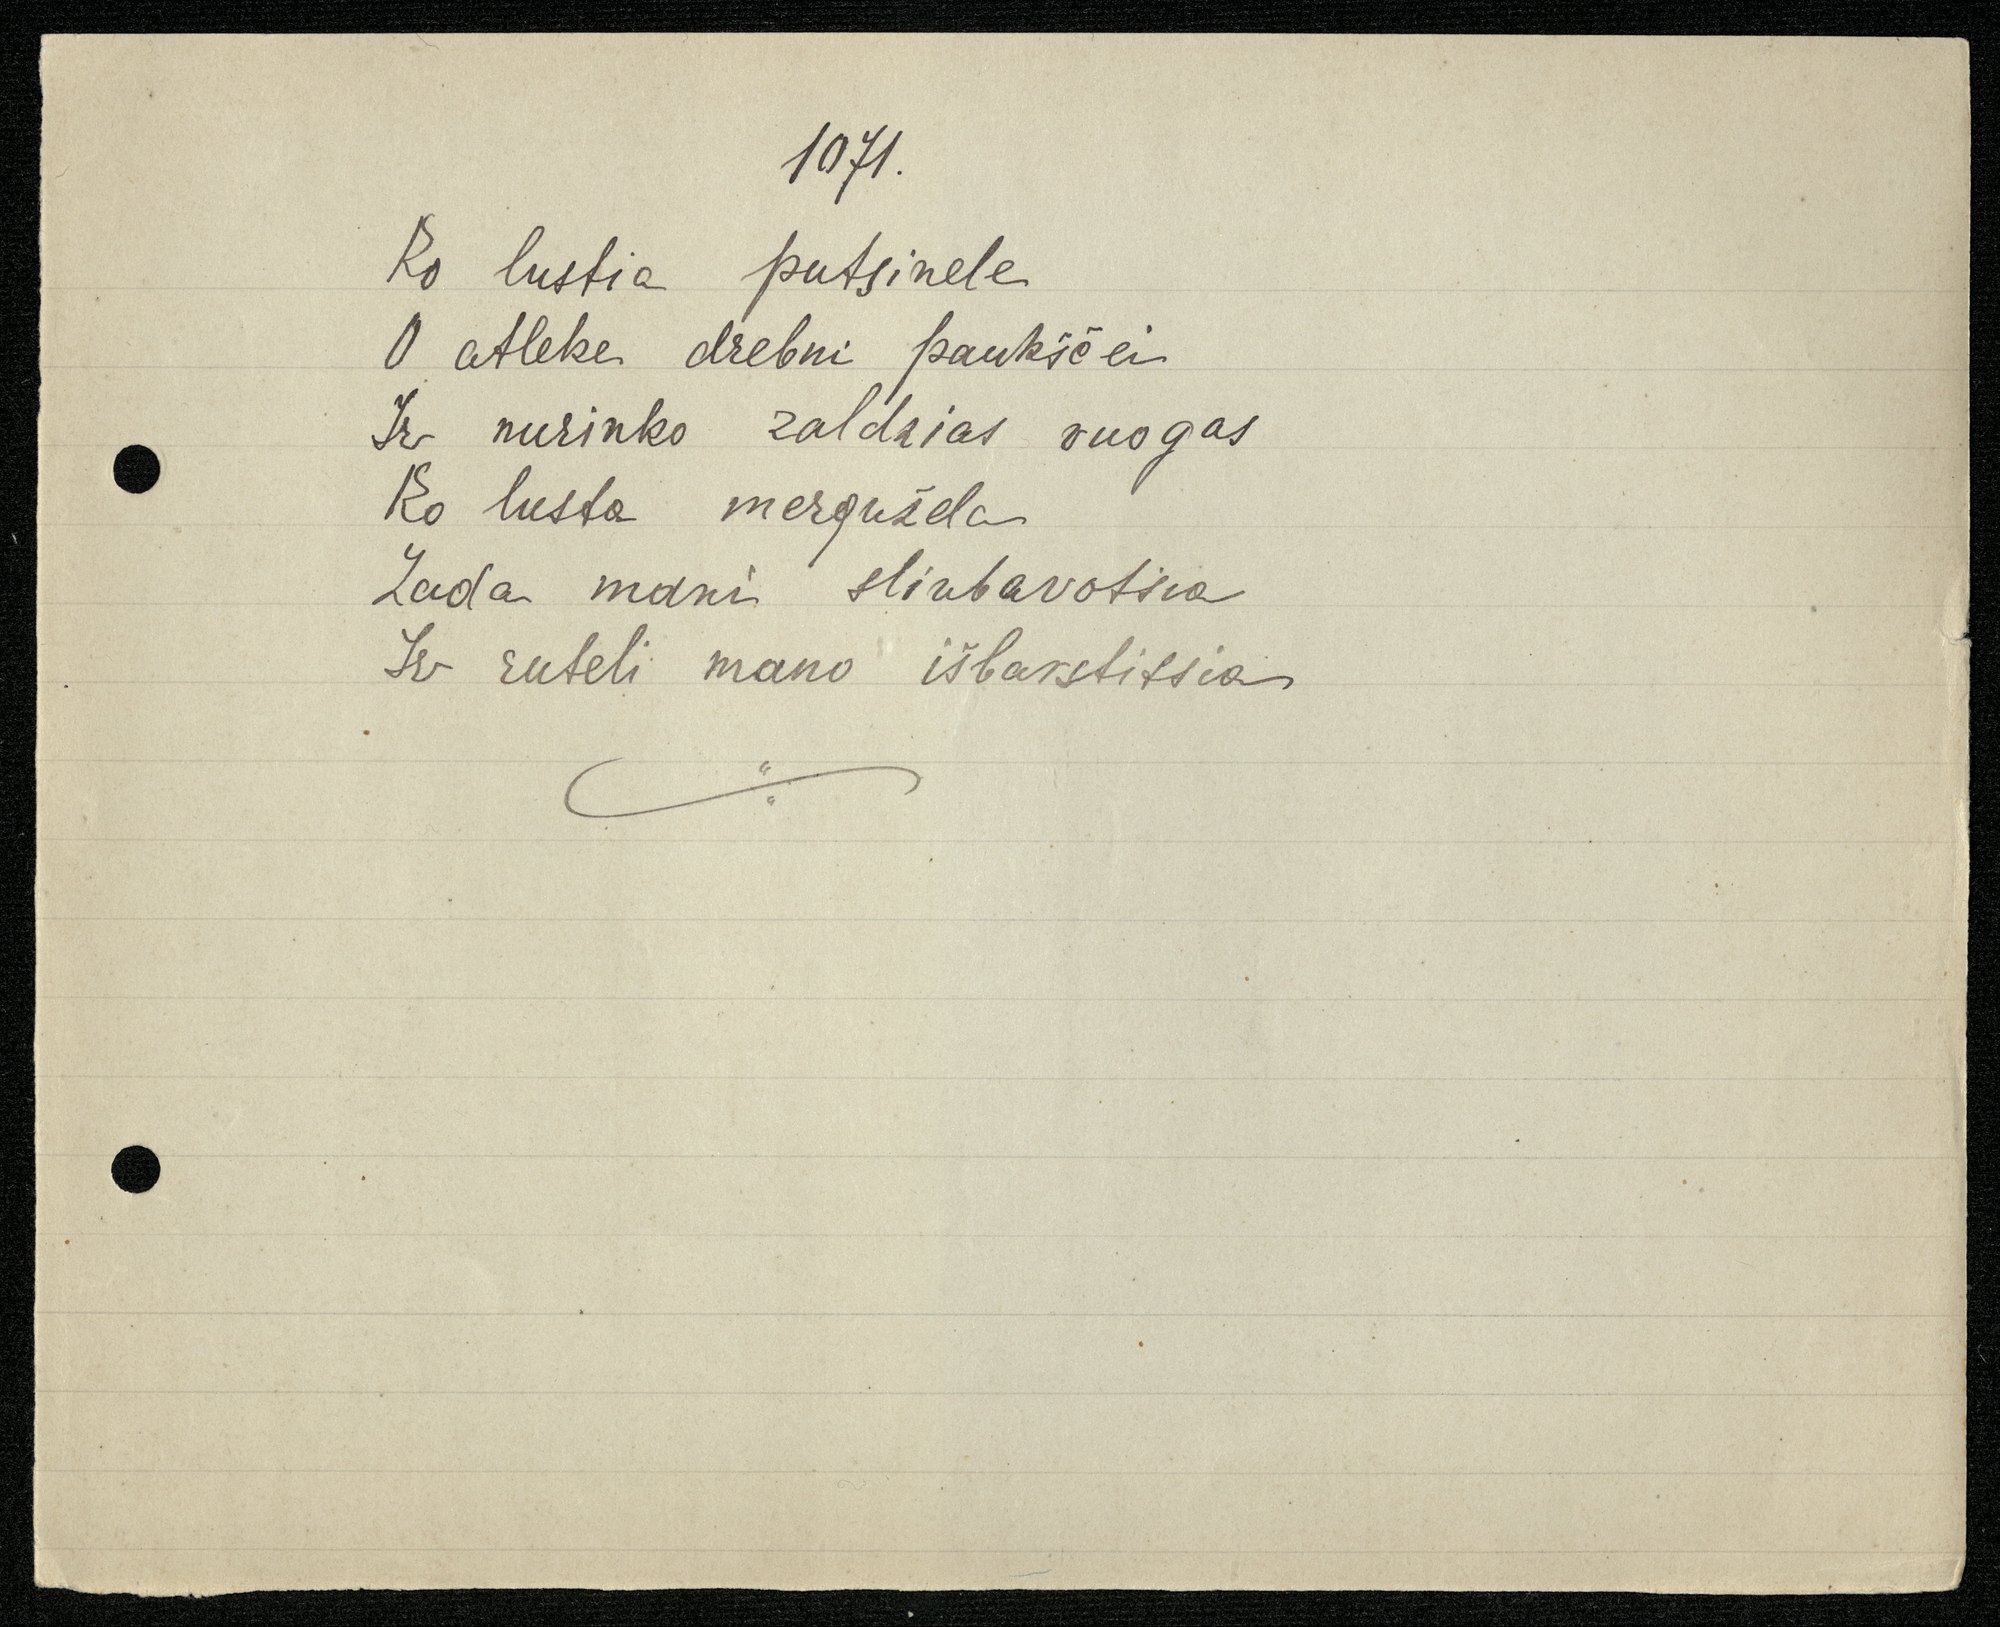 1071.
Ko lustia putsinele
O atleke drebni paukščei
Ir nurinko zaldzias vuogas
Ko lusta mergužela
Zada mani sliubavotsia
Ir ruteli mano išbarstitsia